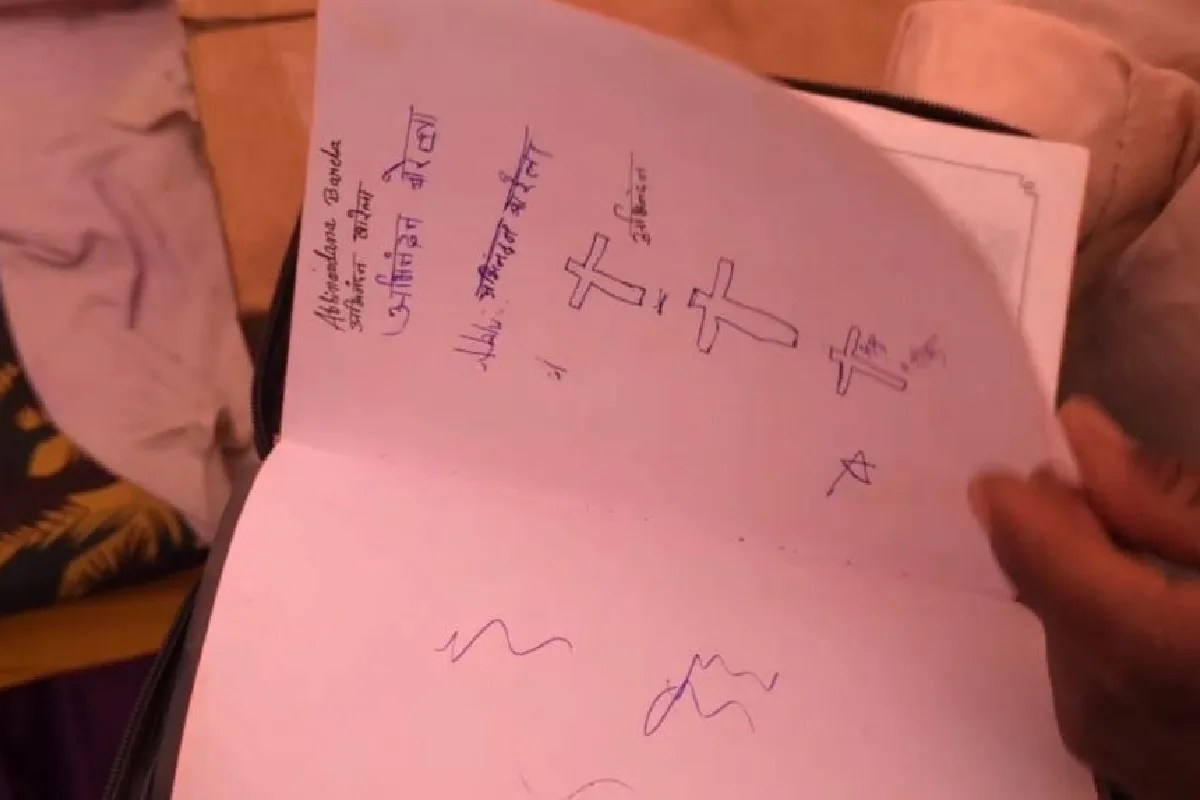 Abhinandana Barela
अभिनंदन बारेला
अभिनंदन बारेला
Abhi: अभिनंदन बारेला
अभिनंदन